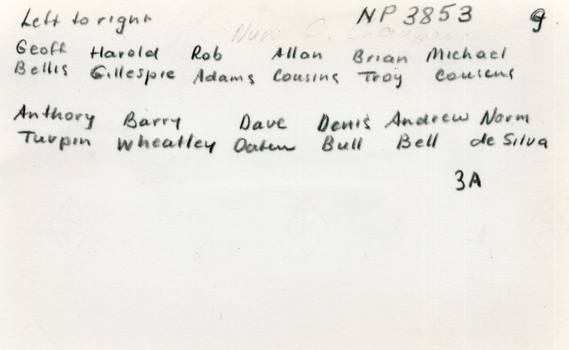 Left to right NP 3853 g
Geoff Harold Rob Allan Brian Michael
Bellis Gillespie Adams Cousins Troy Cousens
Anthony Barry Dave Denis Andrew Norm
Turpin Wheatley Oaten Bull Bell de Silva
3A